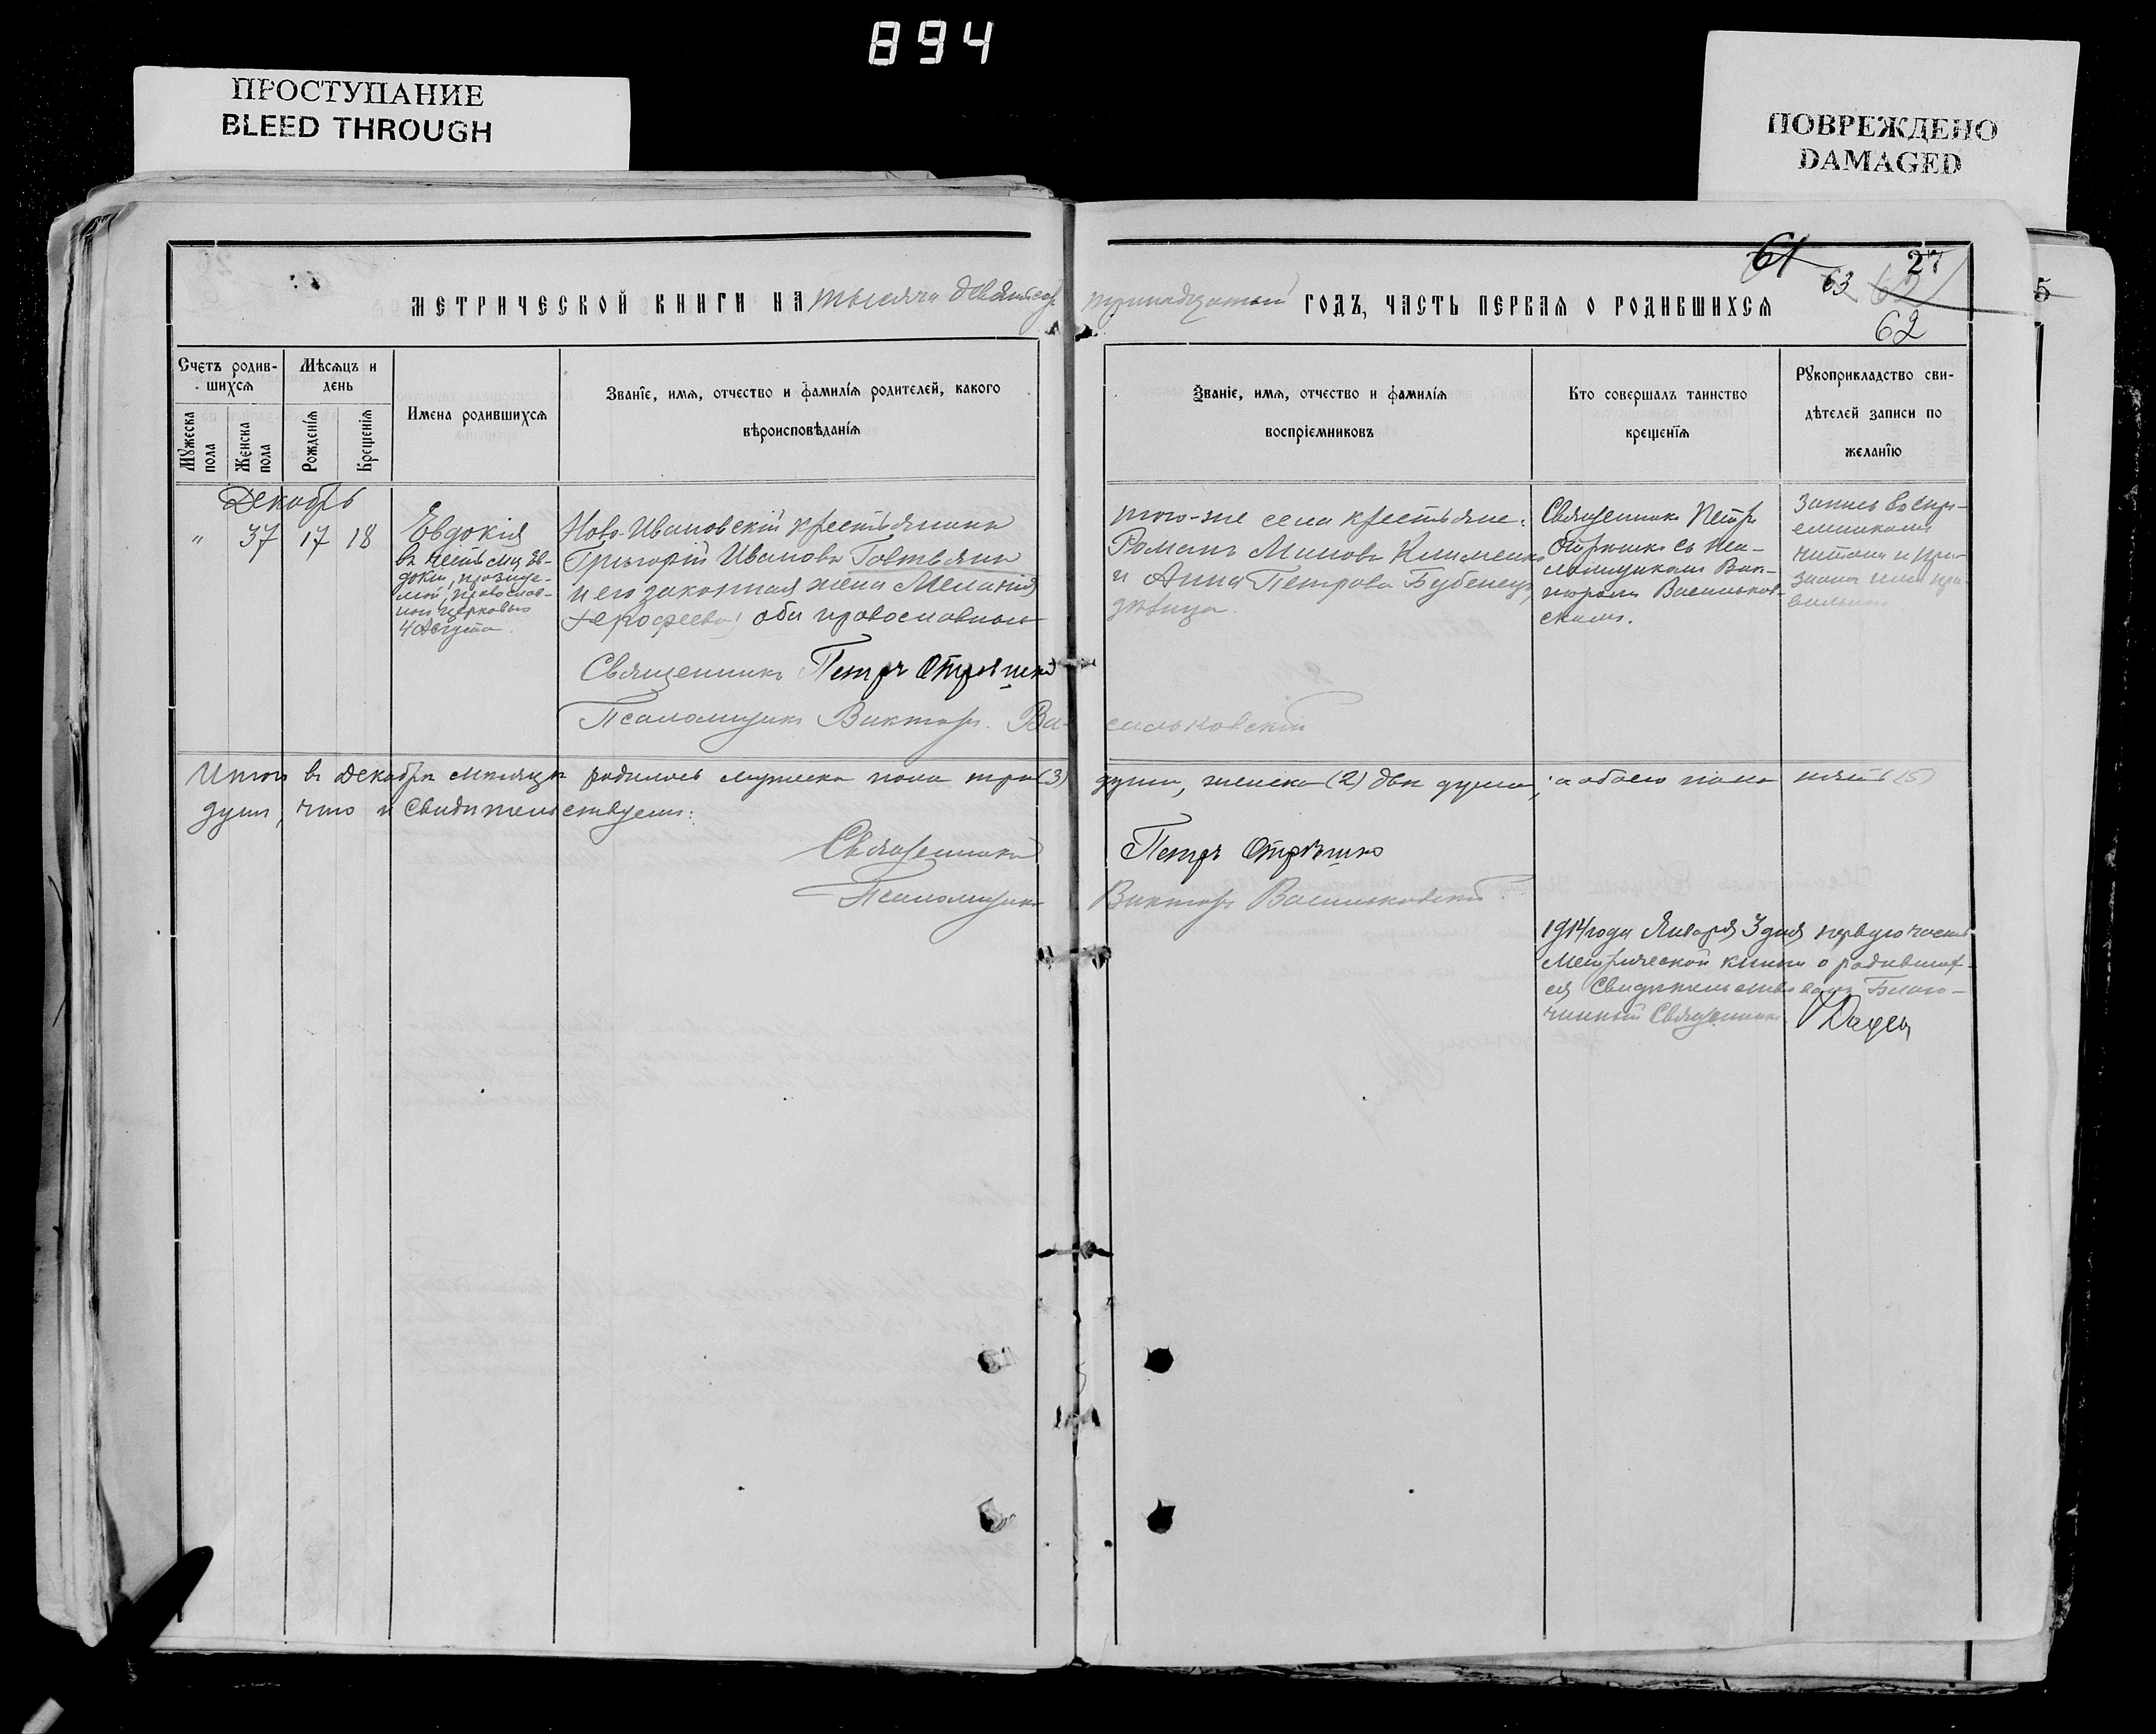 894
ПРОСТУПАНИЕ
BLEED THROUGH
ПОВРЕЖДЕНО
DAMAGED
61
27
63
62
62
5
МЕТРИЧЕСКОЙ КНИГИ НА тысяча девятьсот тринадцатый ГОДЪ, ЧАСТЬ ПЕРВАЯ О РОДИВШИХСЯ
Счетъ родив-
шихся
Мужеска пола
Женска пола
Мѣсяцъ и
день
Рожденія
Крещенія
Имена родившихся
Званіе, имя, отчество и фамилія родителей, какого
вѣроисповѣданія
Званіе, имя, отчество и фамилія
воспріемниковъ
Кто совершалъ таинство
крещенія
Рукоприкладство сви-
дѣтелей записи по
желанію
Декабрь
" 37 17 18
Евдокія
въ честь муц. Ев-
докіи, празнуе-
мой, православ-
ной церковью
4 Августа.
Ново-Ивановскій крестьянинъ
Григорій Ивановъ Говтвянъ
и его законная жена Меланія
Ерофеева, оба православные
Священникъ Петръ Отрѣшко
Псаломщикъ Викторъ Васильковскій
того-же села крестьяне:
Романъ Миновъ Клименко
и Анна Петрова Бубенецъ,
дѣвица.
Священникъ Петръ
Отрѣшко съ пса-
ломщикомъ Вик-
торомъ Васильков-
скимъ.
Запись воспрі-
емниками
читана и при-
знана ими пра-
вильною
Итого въ Декабрѣ мѣсяцѣ родилось мужеска пола три (3) души, женска (2) двѣ души, а обоего пола пять (5)
душъ, что и свидѣтельствуемъ:
Священникъ Петръ Отрѣшко
Псаломщикъ Викторъ Васильковскій.
1914 года Января 3 дня первую часть
Метрической книги о родивших-
ся Свидѣтельствовалъ Благо-
чинный Священникъ